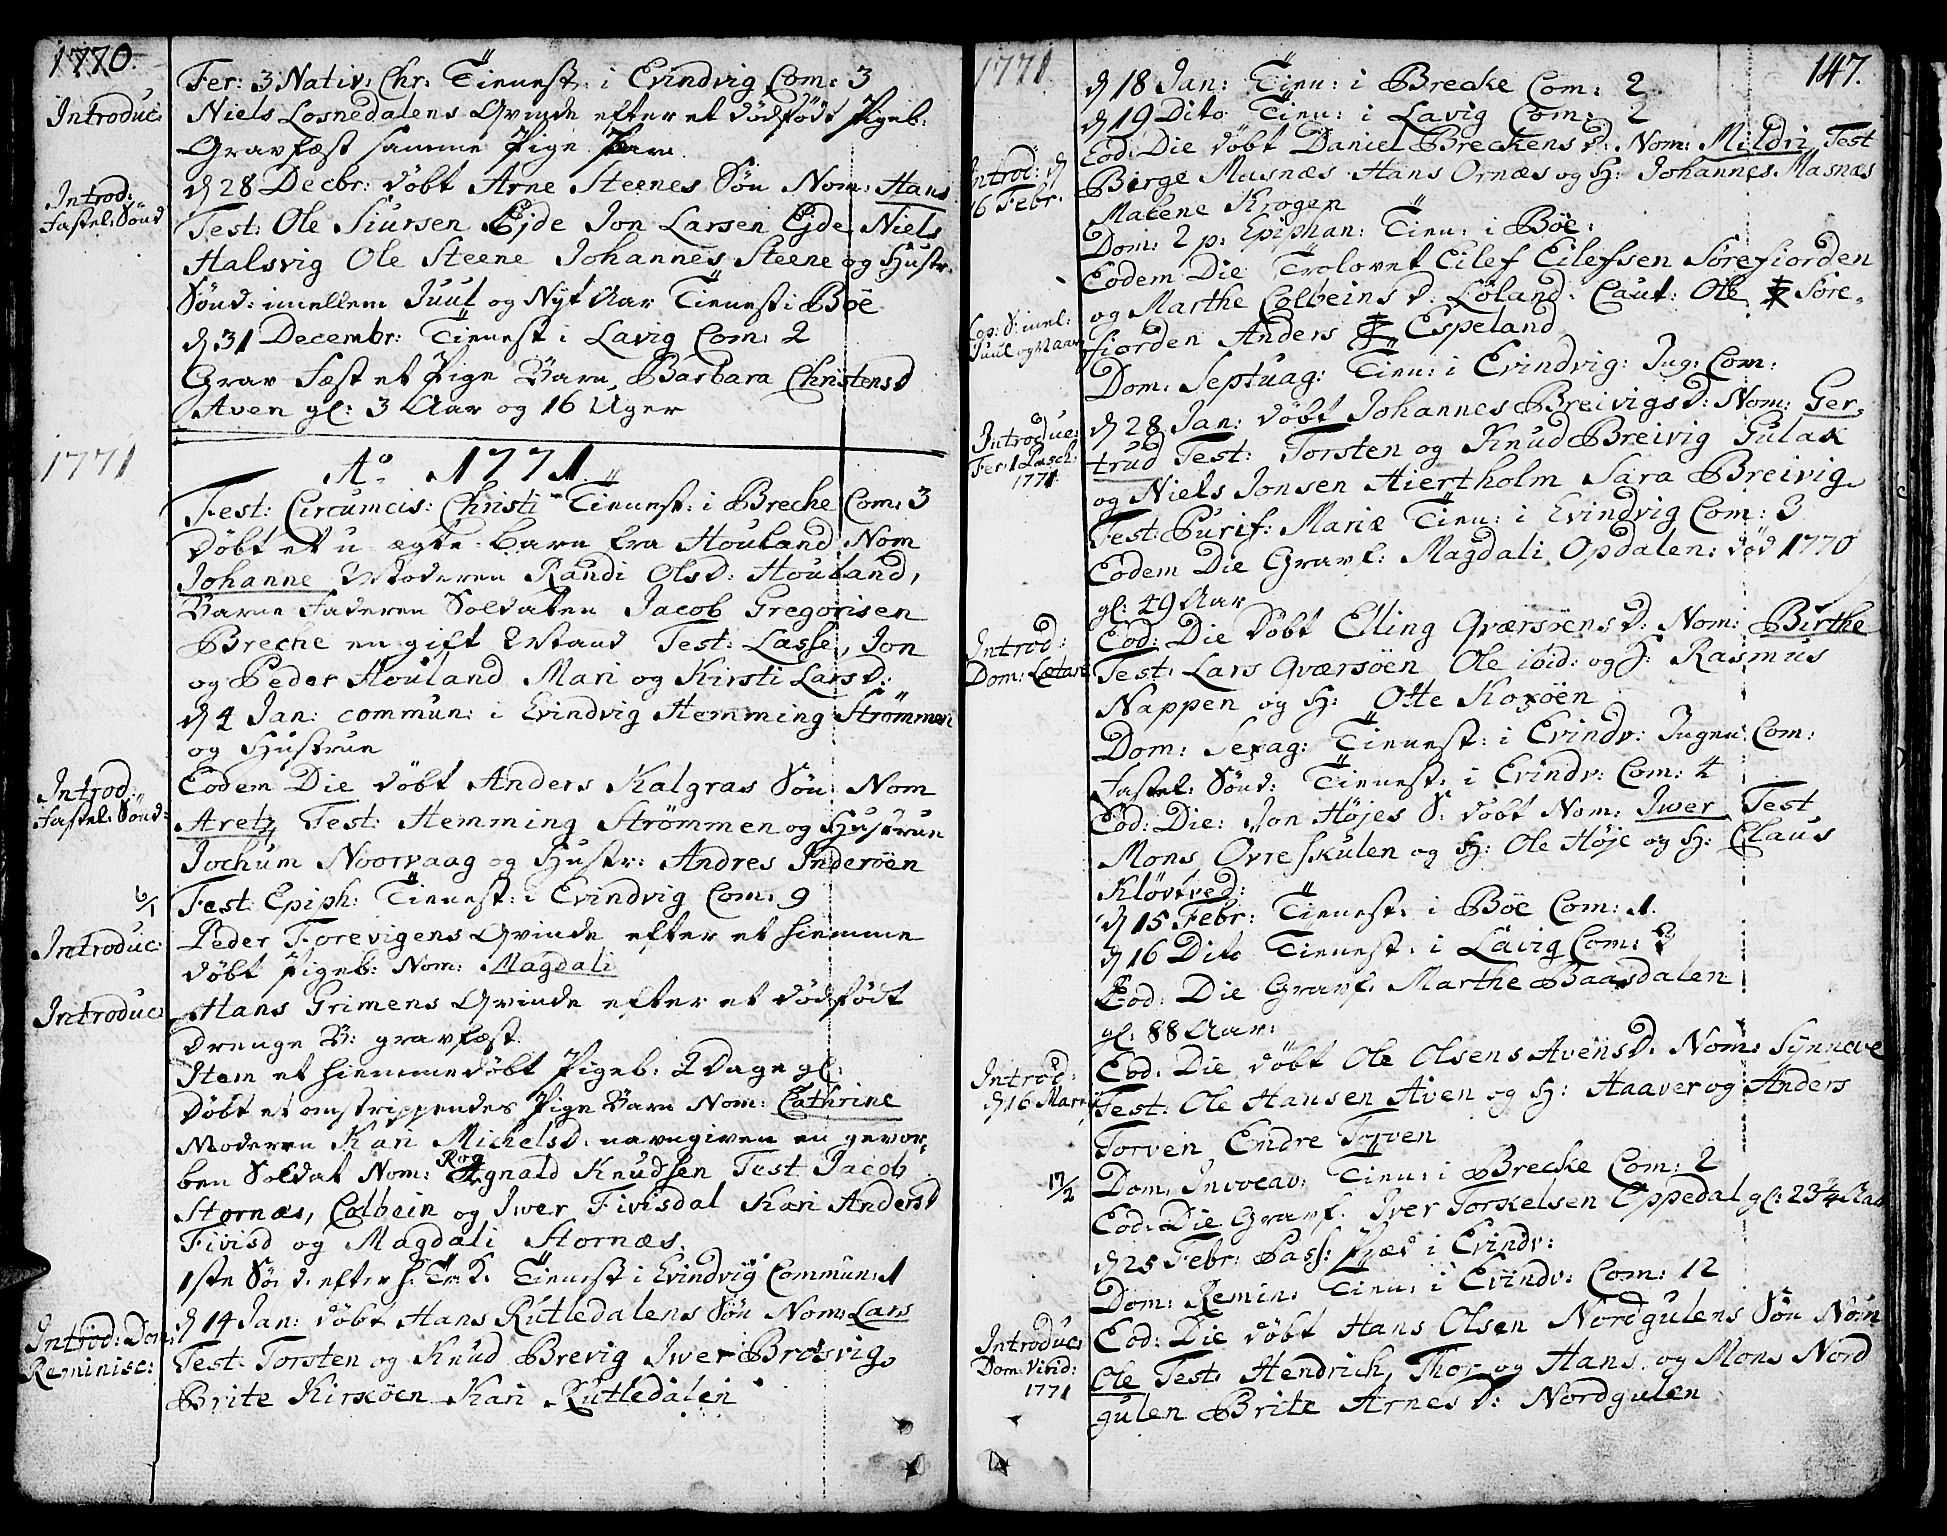 1770.
Fer: 3 Nativ: Chr: Tienest: i Evindvig Com: 3
Introduc: Niels Losnedalens Qvinde efter et dødfødt Pigeb:
Gravfæst samme Pige Barn
Introd: Fastel: Sønd
d 28 Decbr: døbt Arne Steenes Søn Nom: Hans
Test: Ole Siursen Ejde Jon Larsen Ejde Niels
Halsvig Ole Steene Johannes Steene og Hustr:
Sønd: imellem Juul og Nyt Aar Tienest i Böe
d 31 Decembr: Tienest i Lavig Com: 2
Grav fæst et Pige Barn, Barbara Christensd
Aven gl: 3 Aar og 16 Uger
1771
A° 1771
Fest: Circumcis: Christi Tienest: i Breche Com: 3
døbt et u-ægte Barn fra Houland Nom
Johanne Moderen Randi Olsd: Houland,
Barne Faderen Soldaten Jacob Gregorisen
Breche en gift Mand Test: Lasse, Jon
og Peder Houland Mari og Kirsti Larsd:
d 4 Jan: commun: i Evindvig Hemming Strömmen
og Hustrue
Introd: Fastel: Sönd:
Eodem Die døbt Anders Kalgras Søn Nom
Aretz, Test: Hemming Strömmen og Hustrue
Jochum Noorvaag og Hustr: Andres Inderöen
6/1 Fest: Epiph: Tienest: i Evindvig Com: 9
Introduc: Peder Forevigens Qvinde efter et hiemme
døbt Pigeb: Nom: Magdali
Introduc: Hans Grimens Qvinde efter et dødfødt
Drenge B: gravfæst.
Item et hiemmedøbt Pigeb: 2 Dage gl:
døbt et omstrippendes Pige Barn Nom: Cathrine
Moderen Kari Michelsd. navngiven en gevor-
ben Soldat Nom: Rognald Knudsen Test Jacob
Stornæs, Colbein og Iwer Fivisdal Kari Andersd
Fivisd og Magdali Stornæs.
1ste Sönd. efter h. Tr. K. Tienest i Evindvig Commun: 1
Introd: Dom: Reminisc:
d 14 Jan: døbt Hans Rutledalens Søn Nom: Lars
Test: Torsten og Knud Brevig Iwer Brosvig,
Brite Kirköen Kari Rutledalen
1771
147.
d 18 Jan: Tien: i Brecke Com: 2
d 19 Dito Tien: i Lavig Com: 2
Introd: d 16 Febr.
Eod: Die døbt Daniel Breckens d: Nom: Mildri Test
Børge Masnæs Hans Ornæs og H: Johannes Masnæs
Malene Krogen
Dom: 2 p: Epiphan: Tien: i Böe:
Eodem Die Trolovet Eilef Eilefsen Sörefiorden
Cop: S: imel: Juul og N: aar
og Marthe Colbeins d: Löland: Caut: Ole Söre-
fiorden Anders Espeland
Dom: Septuag: Tien: i Evindvig: Ing: Com:
Introduc: Fer: 1 Pasch: 1771
d 28 Jan: døbt Johannes Breivigs d: Nom: Ger-
trud Test: Torsten og Knud Breivig Gulak
og Niels Jonsen Hiertholm Sara Breivig
Fest: Purif: Mariæ Tien: i Evindvig Com: 3
Eodem Die Gravf: Magdali Opdalen: død 1770
gl: 49 Aar
Introd: Dom: Lætare
Eod: Die døbt Elling Qværsöens d: Nom: Birthe
Test: Lars Qværsöen Ole ibid: og H: Rasmus
Nappen og H: Otte Koxöen
Dom: Sexag: Tienest: i Evindv: Ingen Com:
Fastel: Sönd: Tienest: i Evindv: Com: 4
Eod: Die: Jon Höjes S: døbt Nom: Iwer Test
Mons Övreskulen og H: Ole Höje og H: Claus
Klövtved:
d 15 Febr: Tienest: i Böe Com: 1.
d 16 Dito Tienest: i Lavig Com: 2
Eod: Die Gravf: Marthe Baasdalen
gl: 88 Aar:
Introd: d 16 Marti
Eod: Die døbt Ole Olsens Avensd: Nom: Synneve
Test: Ole Hansen Aven og H: Haaver og Anders
Torven Endre Torven
17/2 Dom: Invocav: Tien: i Brecke Com: 2
Eod: Die Gravf: Iver Torkelsen Oppedal gl: 23 3/4 Aar
d 25 Febr: Pass: Præd i Evindv:
Dom: Remin: Tien: i Evindv: Com: 12
Introduc: Dom: Vivid: 1771
Eod: Die døbt Hans Olsen Nordgulens Søn Nom
Ole Test: Hendrich, Thor og Hans og Mons Nord
gulen Brite Arnes d: Nordgulen